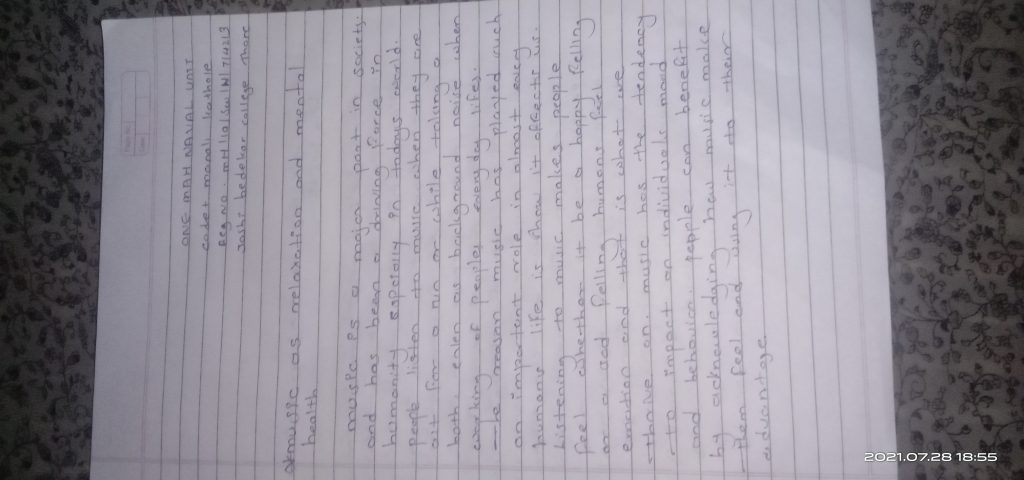 one MAH NAVAL UNIT
cadet manali kawhare
reg no. MH19/a/sw/N/714113
Joshi bedekar college thane
music as relaxation and mental
health
music is a major part in society.
and has been a driving force in
humanity espcially in todays world.
People listen to music when they are
out for a run or while taking a
both, even as background noise when
cooking of peoples everyday lifes.
the reason music has played such
an important role in almost every
humans life is show it affecting us.
Listening to music makes people
feel whether it be a happy felling
or a sad felling humans feel
emotion and that is what we
thrive on. music has the tendency
to impact an individuels mood
and behavior. people can benefit
by acknowledging how music make
them feel and using it to their
advantage.
2021.07.28 18:55